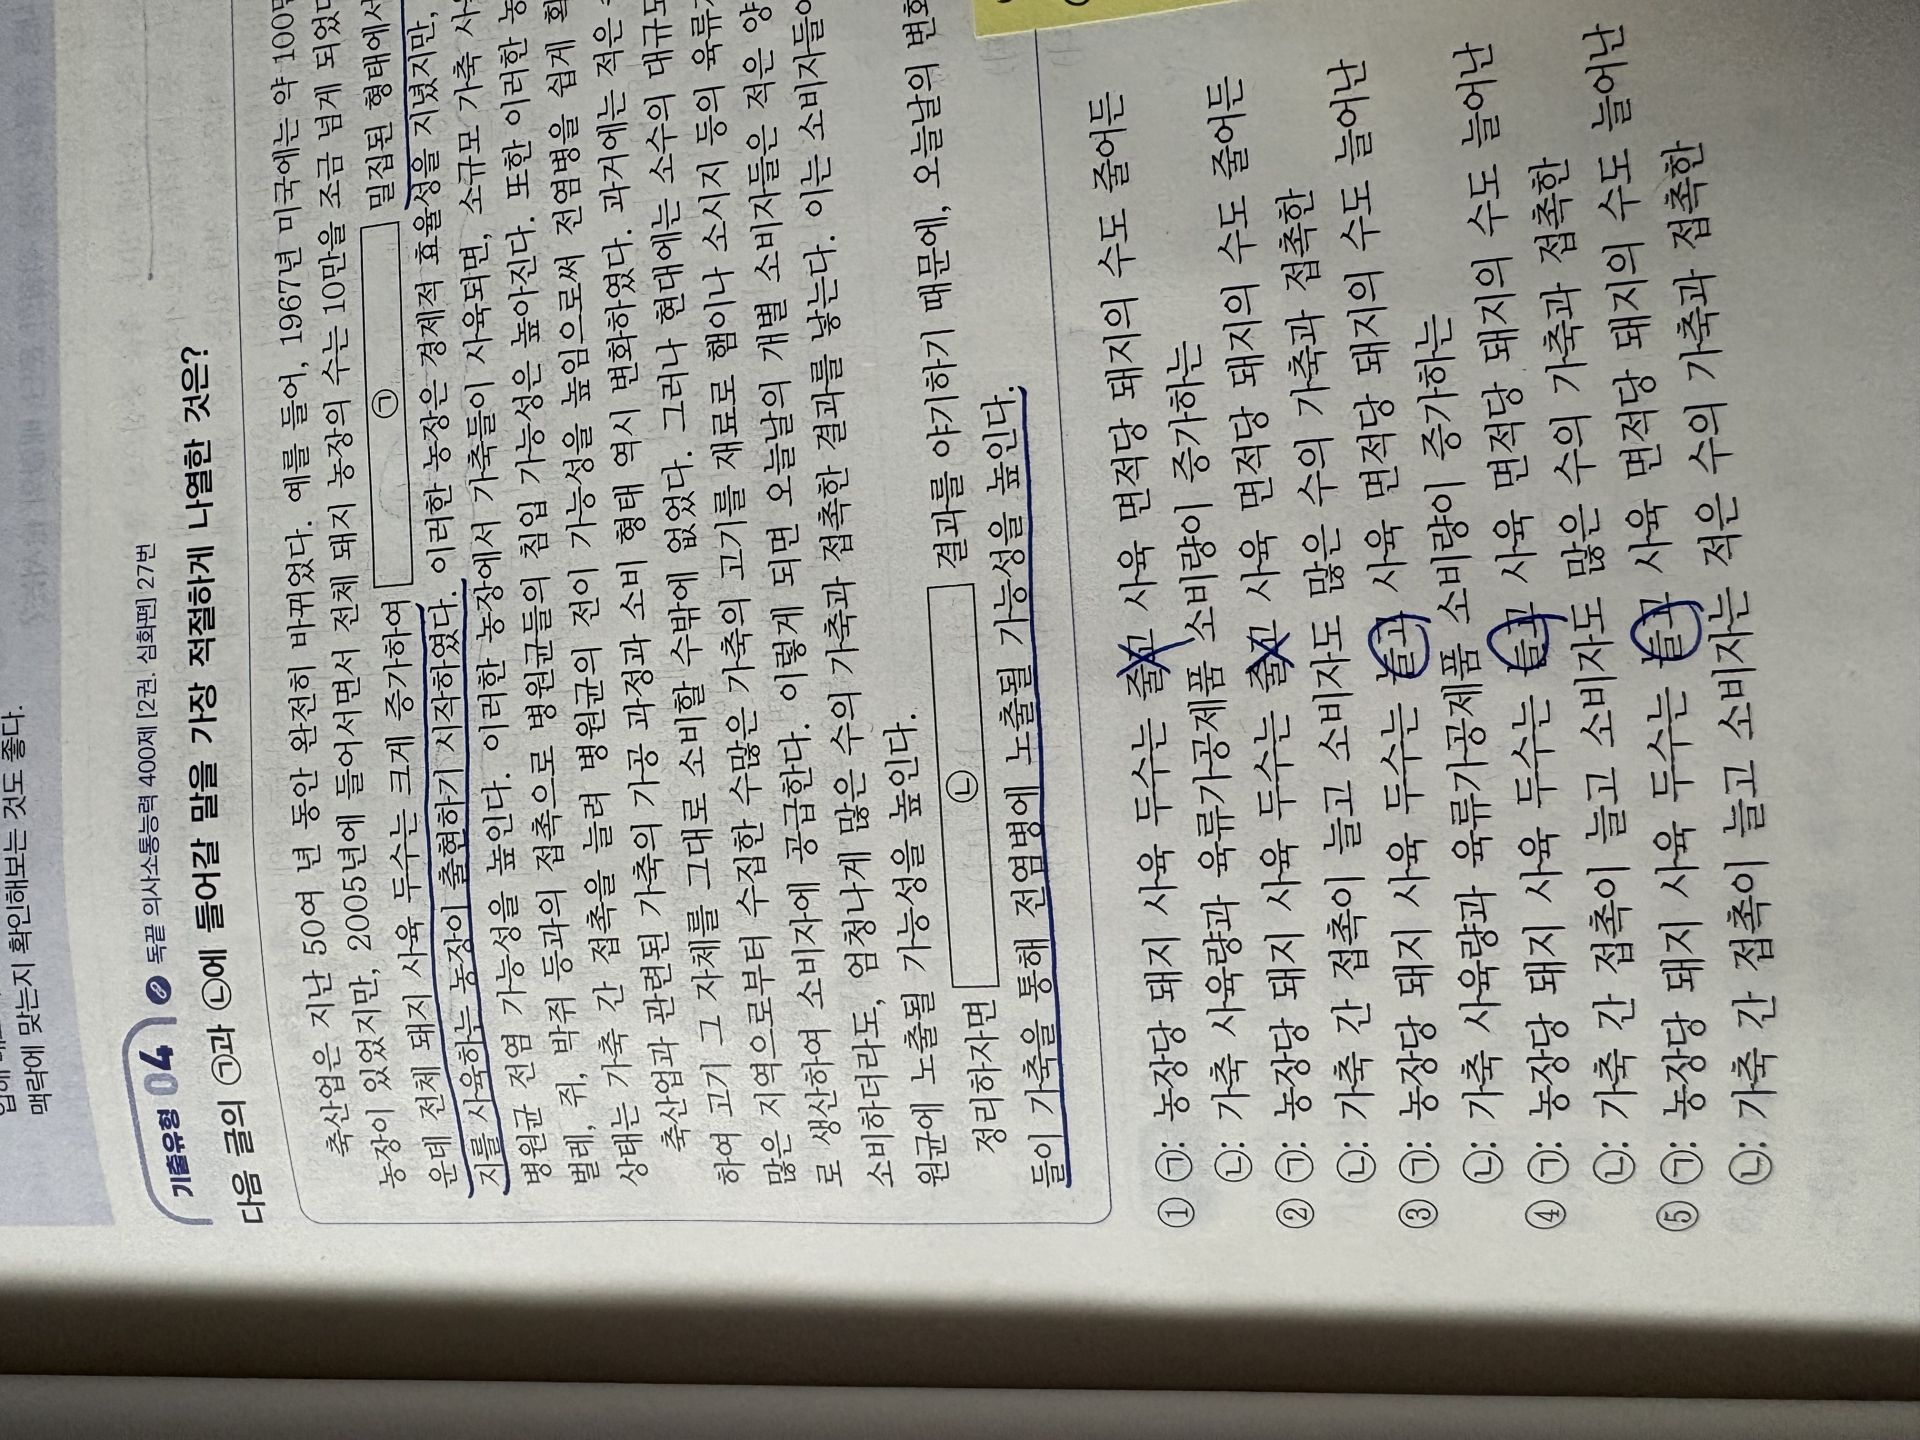 맥락에 맞는지 확인해보는 것도 좋다.
기출유형 04 독끝 의사소통능력 400제 [2권. 심화편] 27번
다음 글의 ㉠과 ㉡에 들어갈 말을 가장 적절하게 나열한 것은?
축산업은 지난 50여 년 동안 완전히 바뀌었다. 예를 들어, 1967년 미국에는 약 100만
농장이 있었지만, 2005년에 들어서면서 전체 돼지 농장의 수는 10만을 조금 넘게 되었다
운데 전체 돼지 사육 두수는 크게 증가하여 ㉠ 밀집된 형태에서
지를 사육하는 농장이 출현하기 시작하였다. 이러한 농장은 경제적 효율성을 지녔지만,
병원균 전염 가능성을 높인다. 이러한 농장에서 가축들이 사육되면, 소규모 가축 사
벌레, 쥐, 박쥐 등과의 접촉으로 병원균들의 침입 가능성은 높아진다. 또한 이러한 농
상태는 가축 간 접촉을 늘려 병원균의 전이 가능성을 높임으로써 전염병을 쉽게 확
축산업과 관련된 가축의 가공 과정과 소비 형태 역시 변화하였다. 과거에는 적은
하여 고기 그 자체를 그대로 소비할 수밖에 없었다. 그러나 현대에는 소수의 대규모
많은 지역으로부터 수집한 수많은 가축의 고기를 재료로 햄이나 소시지 등의 육류
로 생산하여 소비자에 공급한다. 이렇게 되면 오늘날의 개별 소비자들은 적은 양
소비하더라도, 엄청나게 많은 수의 가축과 접촉한 결과를 낳는다. 이는 소비자들이
원균에 노출될 가능성을 높인다.
정리하자면 ㉡ 결과를 야기하기 때문에, 오늘날의 변화
들이 가축을 통해 전염병에 노출될 가능성을 높인다.
① ㉠: 농장당 돼지 사육 두수는 줄고 사육 면적당 돼지의 수도 줄어든
㉡: 가축 사육량과 육류가공제품 소비량이 증가하는
② ㉠: 농장당 돼지 사육 두수는 줄고 사육 면적당 돼지의 수도 줄어든
㉡: 가축 간 접촉이 늘고 소비자도 많은 수의 가축과 접촉한
③ ㉠: 농장당 돼지 사육 두수는 늘고 사육 면적당 돼지의 수도 늘어난
㉡: 가축 사육량과 육류가공제품 소비량이 증가하는
④ ㉠: 농장당 돼지 사육 두수는 늘고 사육 면적당 돼지의 수도 늘어난
㉡: 가축 간 접촉이 늘고 소비자도 많은 수의 가축과 접촉한
⑤ ㉠: 농장당 돼지 사육 두수는 늘고 사육 면적당 돼지의 수도 늘어난
㉡: 가축 간 접촉이 늘고 소비자는 적은 수의 가축과 접촉한